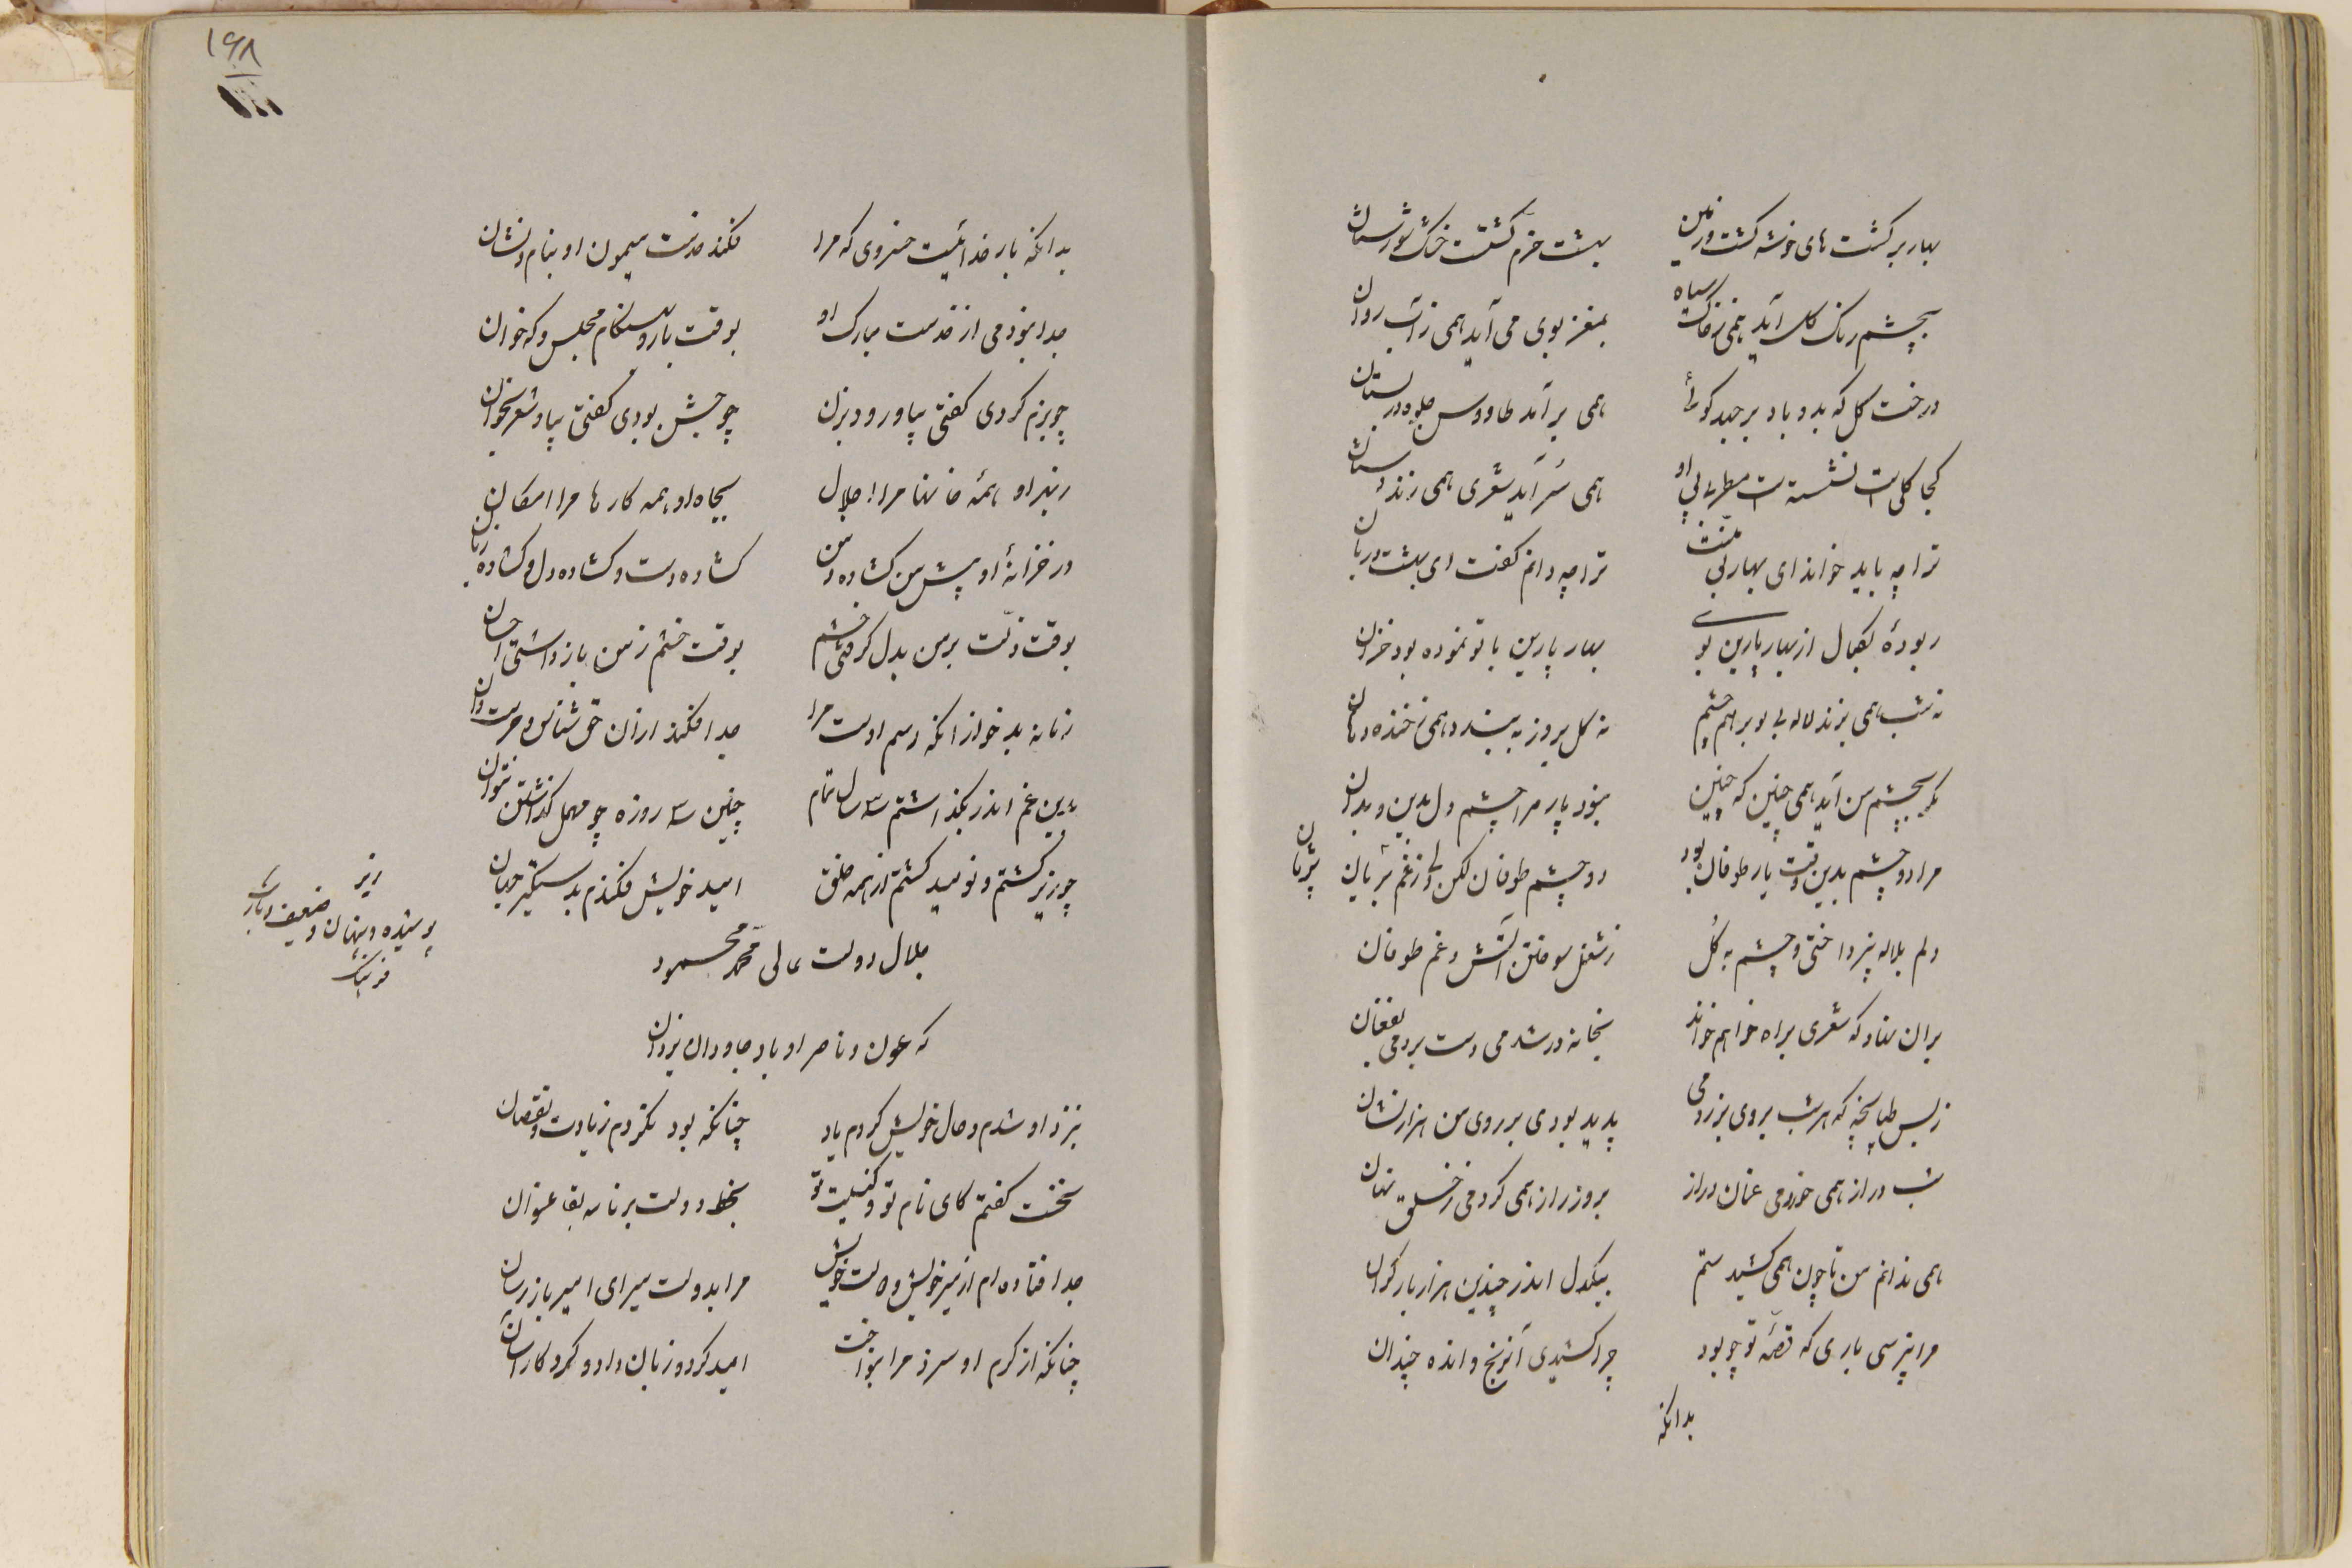 بهار برگشت های خوشه کشت ورزین    بهشت خرم گشتت خشک شورستان
بچشم رنگ گل آید همی ز خاک سیاه    بمغز بوی می آید همی ز آب روان
درخت گل که بدو باد برجهد گوئی    همی برآمد طاووس جلوه در بستان
کجا گلی است نشسته است مطربی بی او    همی سرآید شعری همی زند دستان
ترا چه باید خواند ای بهار بی منت    ترا چه دانم گفت ای بهشت دربان
ربودهٔ بکمال از بهار پارین بوی    بهار پارین با تو نموده بود خزان
نه شب همی بزند لاله بی تو بر هم چشم    نه گل بروز ببندد همی ز خنده دهان
مگر بچشم من آید همی چنین که چنین    نبود پار مرا چشم و دل بدین و بدان
مرا دو چشم بدین وقت پار طوفان بود    دو چشم طوفان لکن دل ز غم بریان
پژمان
دلم بلاله نپرداختی و چشم به گل    ز شغل سوختن آتش و غم طوفان
بران نهاد که شعری براه خواهم خواند    بخانه در شدمی دست بردمی بفغان
ز بس طپانچه که هر شب بروی برزدمی    پدید بودی بر روی من هزار نشان
شب دراز همی خوردمی غمان دراز    بروز راز همی کردمی ز خلق نهان
همی ندانم من تا چون همی کشید ستم    بیکدل اندر چندین هزار بار گران
مرا بپرسی باری که قصهٔ تو چه بود    چرا کشیدی آن رنج و انده چندان
بدانکه
۱۶۸
بدانکه بار خدائیست خسروی که مرا    فکند خدمت میمون او بنام و نشان
جدا نبودمی از خدمت مبارک او    بوقت بار و بهنگام مجلس و گه خوان
چو بزم کردی گفتی بیا و رود بزن    چو جشن بودی گفتی بیا و شعر بخوان
ز بذر او همه خانها مرا اجلال    بجاه او همه کارها مرا امکان
در خزانهٔ او پیش من گشاده و من    گشاده دست و گشاده دل و گشاده زبان
بوقت زلت بر من بدل گرفتی خشم    بوقت خشم ز من باز داشتی احسان
زمانه بد خواز آنکه رسم اوست مرا    جدا فکند ازان حق شناس و حرمت دان
بدین غم اندر بگذاشتم سه سال تمام    چنین سه روزه چو مهمل گذاشتن نتوان
چو زیر گشتم و نومید گشتم از همه خلق    امید خویش فکندم بدستگیر جهان
زیر
پوشیده و پنهان و ضعیف و باریک
فرهنگ
جلال دولت عالی محمد محمود
که عون و ناصر او باد جاودان یزدان
بنزد او شدم و حال خویش کردم یاد    چنانکه بود نکردم زیادت و نقصان
نخست گفتم کای نام تو و کنیت تو    بخط دولت بر نامه بقا عنوان
جدا فتاده ام از میر خویش و دولت خویش    مرا بدولت میر ای امیر باز رسان
چنانکه از کرم او سزد مرا بنواخت    امید کرد و زبان داد و کرد کار آسان